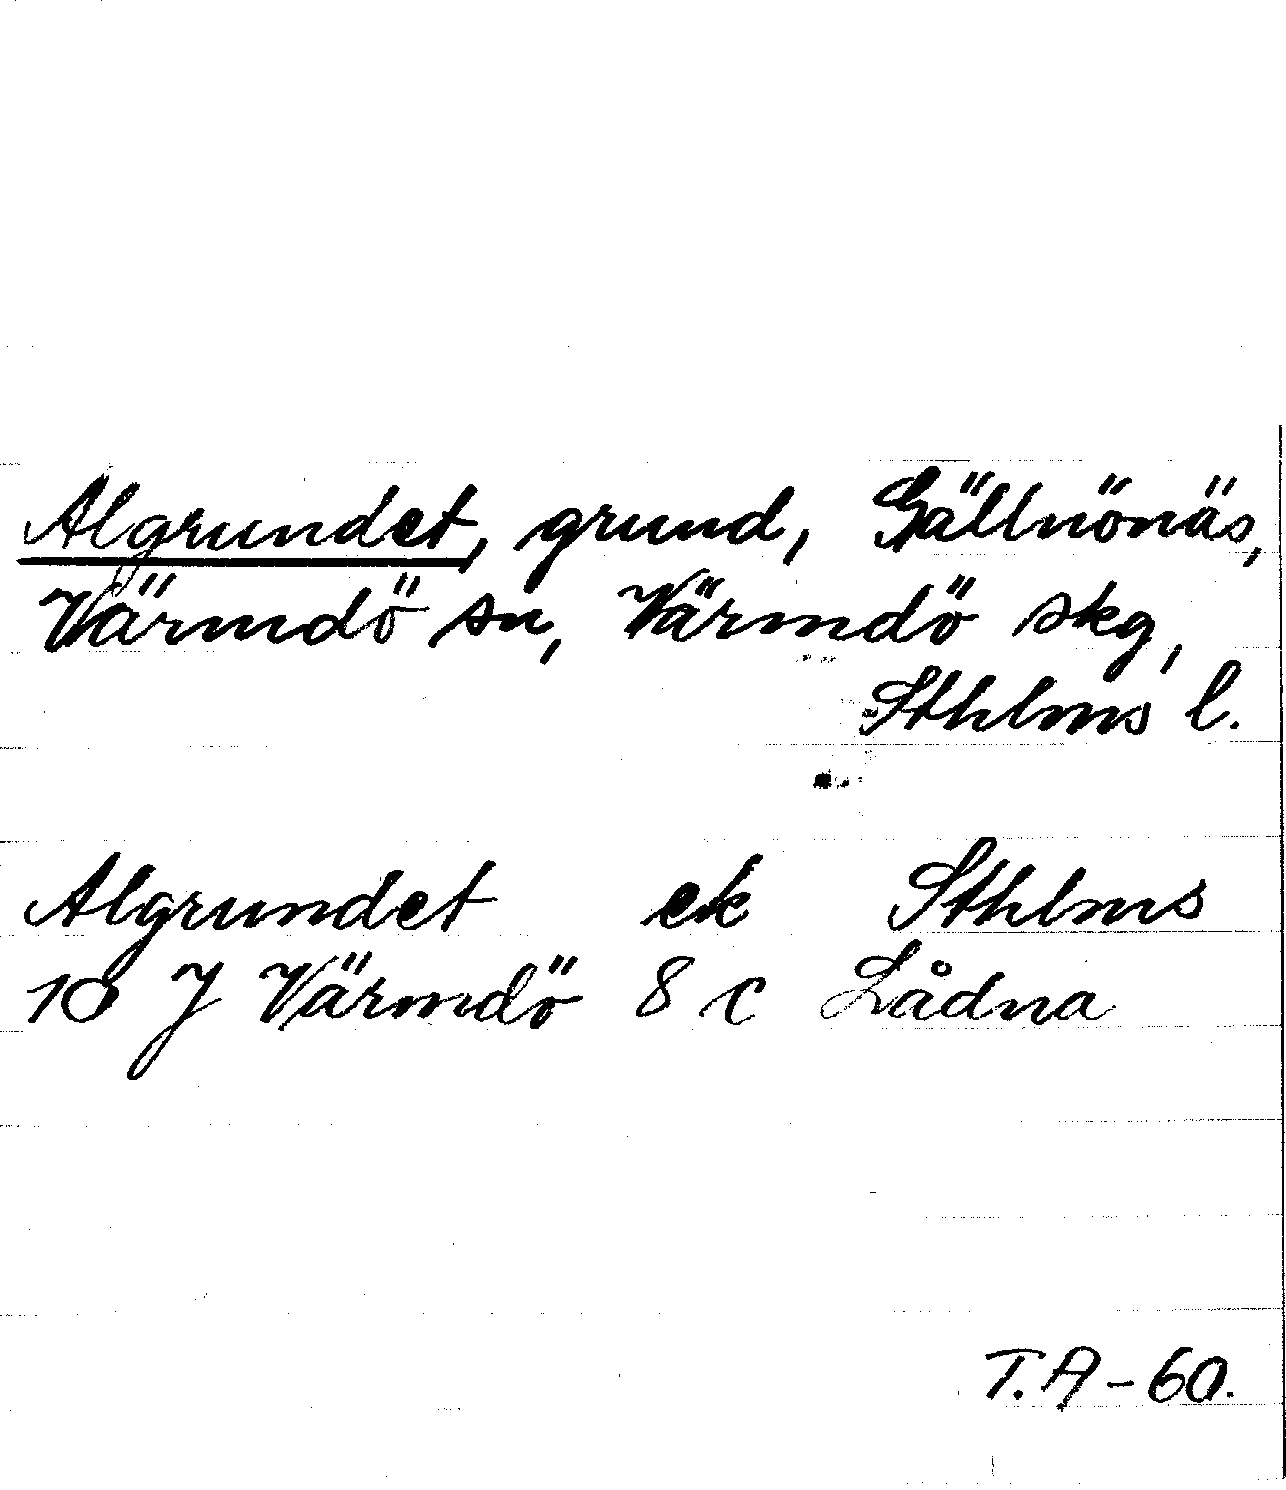 Algrundet, grund, Gällnönäs,
Värmdö sn, Värmdö skg,
Sthlms l.
Algrundet ek Sthlms
10 J Värmdö 8 c Lådna
T.A-60.